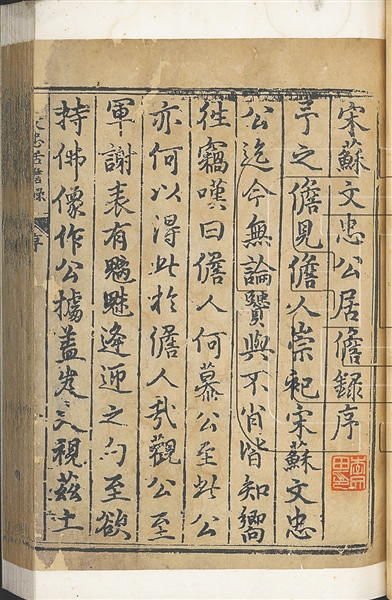 宋蘇文忠公居儋録序
予之儋見儋人崇祀宋蘇文忠
公迄今無論賢與不肖皆知嚮
往竊嘆曰儋人何慕公至此公
亦何以得此於儋人哉觀公至
軍謝表有魑魅逢迎之句至欲
持佛像作公據盖視茲土
文忠居儋錄
序